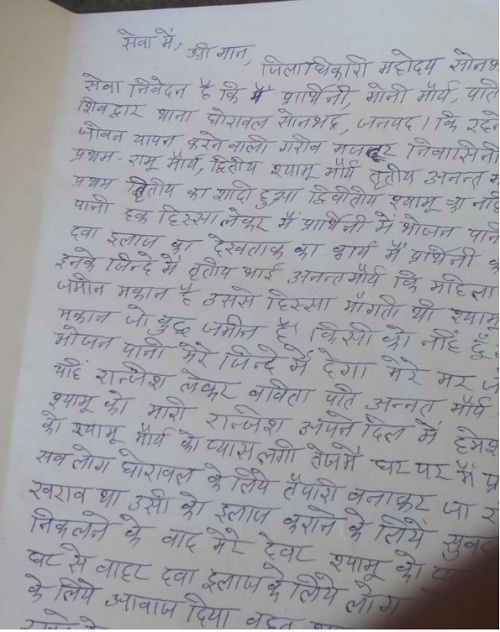 सेवा में, श्री मान, जिलाधिकारी महोदय सोनभ
सेवा निवेदन है कि मैं प्रार्थिनी, मोनी मौर्य, पति
शिवद्वार थाना घोरावल सोनभद्र, जनपद। कि रहने
जीवन यापन करने वाली गरीव मजदूर निवासिनी
प्रथम- रामू मौर्य, द्वितीय श्यामू मौर्य तृतीय अनन्त म
प्रथम तृतीय का शादी हुआ द्वितीय श्यामू का नहि
पानी हक हिस्सा लेकर मैं प्रार्थिनी में भोजन पानी
दवा इलाज का देखताक का कार्य मैं प्रार्थिनी क
इनके जिन्दे में तृतीय भाई अनन्त मौर्य कि महिला
जमीन मकान है उससे हिस्सा माँगती थी श्यामू
मकान जो कुछ जमीन है। किसी को नहि दूँ
भोजन पानी मेरे जिन्दे में देगा मेरे मर ज
यहि रान्जिश लेकर वाविता पति अन्नत मौर्य
श्यामू को मारी रान्जिश अपने दिल में हमेश
को श्यामू मौर्य को प्यास लगी तेजमें घर पर मैं प्र
सव लोग घोरावल के लिये तैयारी वनाकर जा र
खराव था उसी को इलाज कराने के लिये सुवह
निकलने के वाद मेरे देवर श्यामू को
घर से वाहर दवा इलाज के लिये लोग
के लिये आवाज दिया वहुत